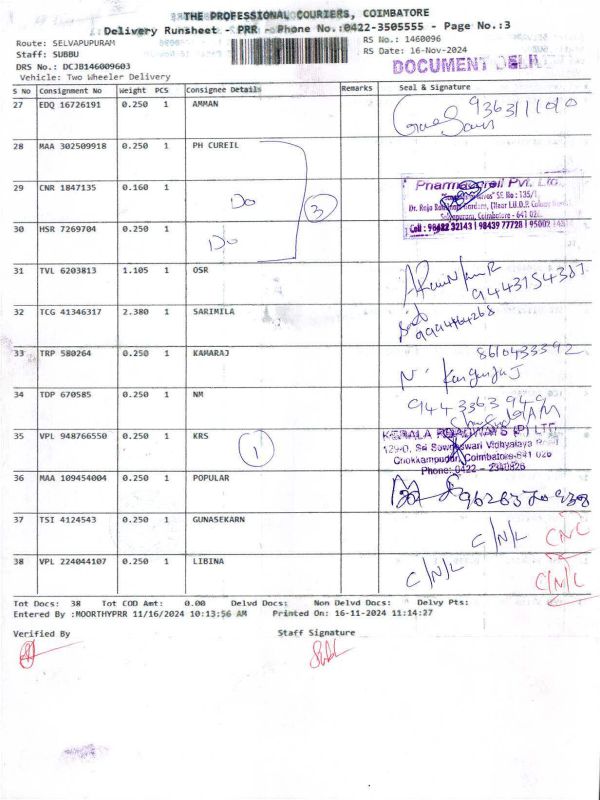 THE PROFESSIONAL COURIERS, COIMBATORE
Delivery Runsheet - PRR - Phone No.:0422-3505555 - Page No.:3
Route: SELVAPUPURAM
RS No.: 1460096
Staff: SUBBU
RS Date: 16-Nov-2024
DRS No.: DCJB146009603
DOCUMENT
Vehicle: Two Wheeler Delivery
S No Consignment No Weight PCS Consignee Details Remarks Seal & Signature
27 EDQ 16726191 0.250 1 AMMAN
28 MAA 302509918 0.250 1 PH CUREIL
29 CNR 1847135 0.160 1 Do 3
Pharmacureil Pvt. Ltd.
30 HSR 7269704 0.250 1 Do
Cell : 98422 32143 | 98439 77728 | 95002
31 TVL 6203813 1.105 1 OSR
32 TCG 41346317 2.380 1 SARIMILA
33 TRP 580264 0.250 1 KAMARAJ 8610433392
34 TDP 670585 0.250 1 NM 944 3363 949
35 VPL 948766550 0.250 1 KRS 1
KERALA ROADWAYS (P) LTD
Chokkampudur, Coimbatore-641 026
Phone: 0422 - 2340826
36 MAA 109454004 0.250 1 POPULAR
37 TSI 4124543 0.250 1 GUNASEKARN C/N/L CNL
38 VPL 224044107 0.250 1 LIBINA C/N/L C/N/L
Tot Docs: 38 Tot COD Amt: 0.00 Delvd Docs: Non Delvd Docs: Delvy Pts:
Entered By :MOORTHYPRR 11/16/2024 10:13:56 AM Printed On: 16-11-2024 11:14:27
Verified By Staff Signature